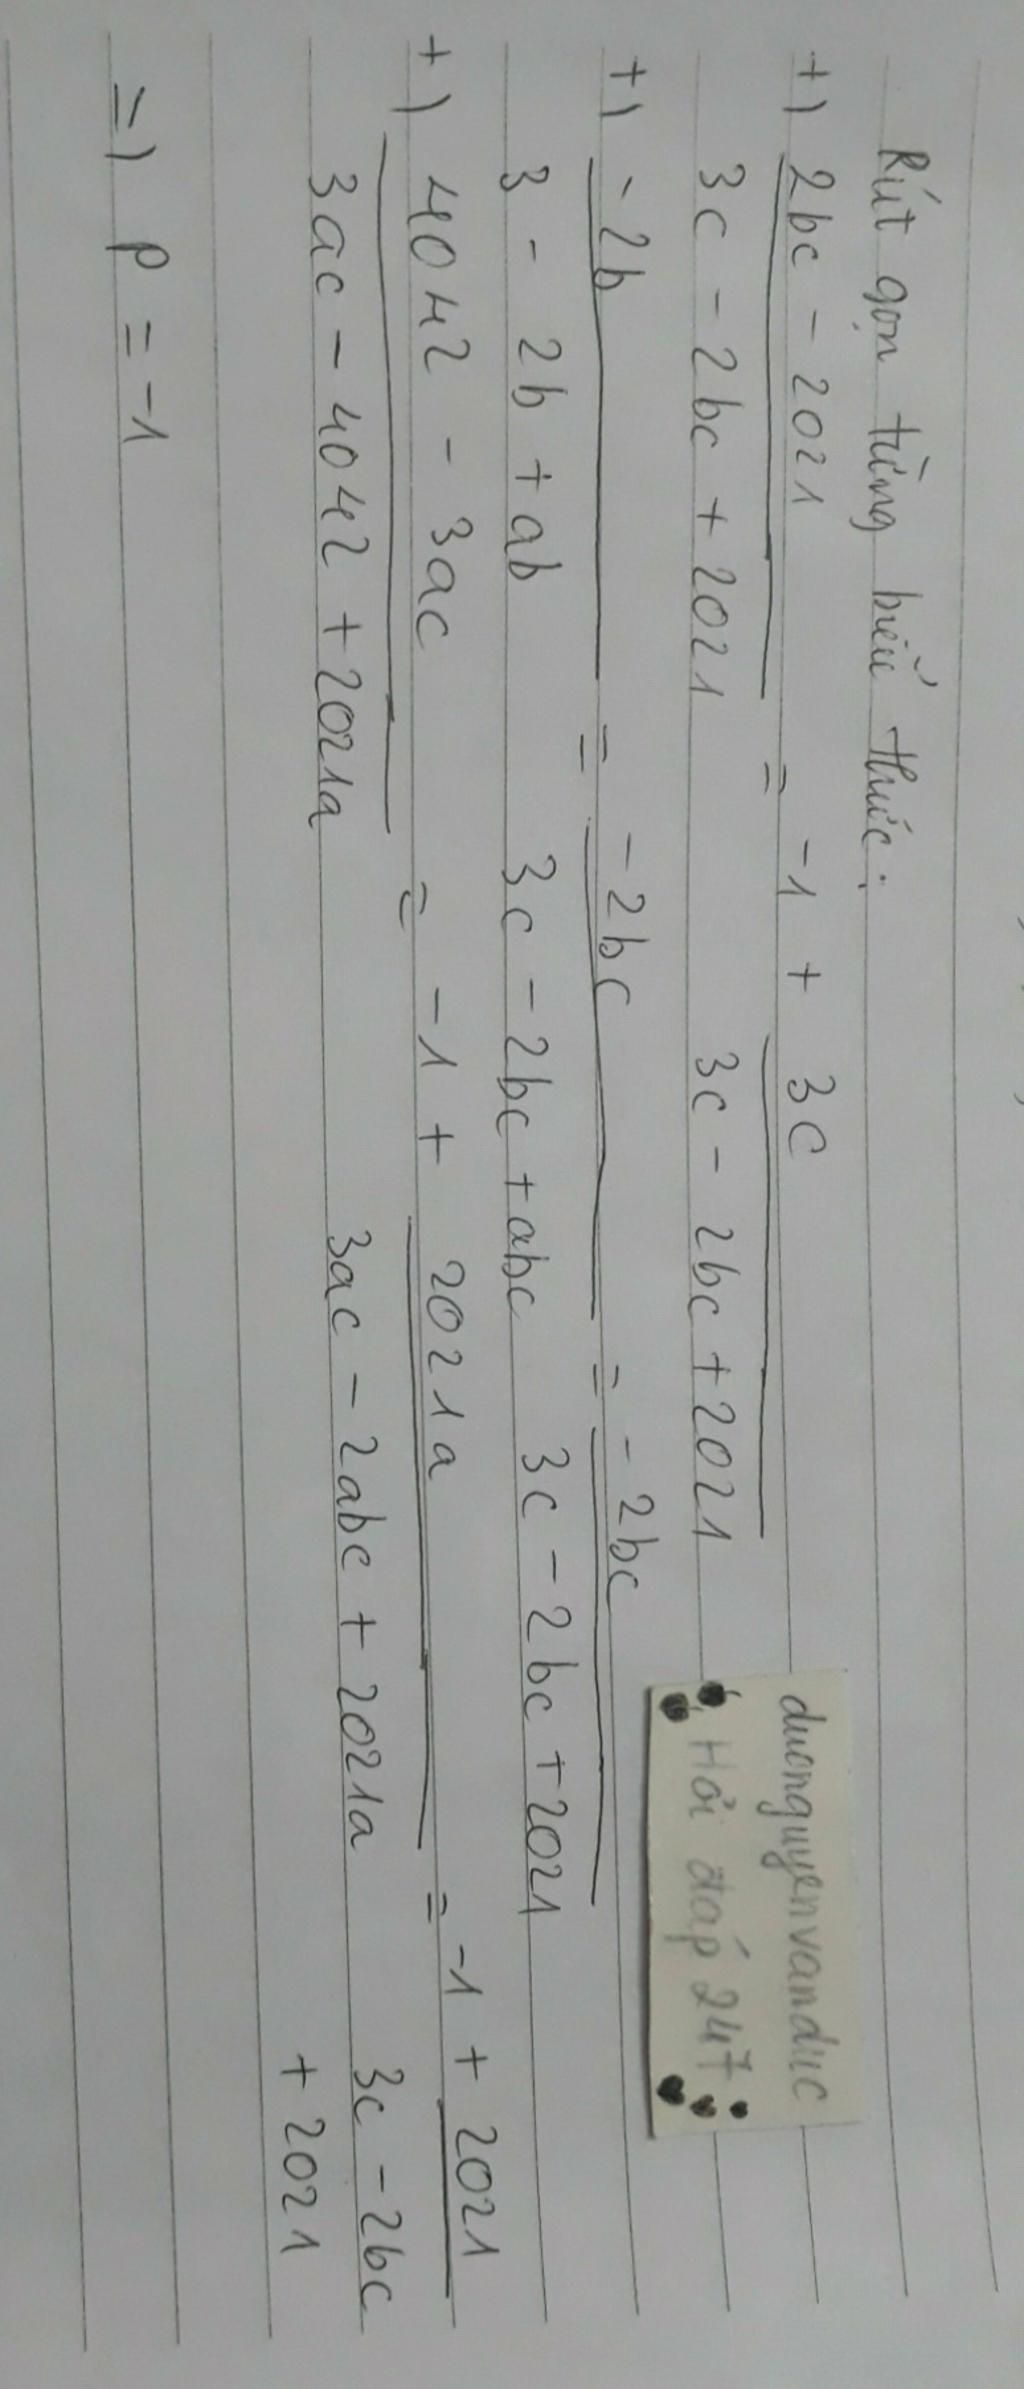 Rút gọn từng biểu thức:
+) 2bc - 2021 / 3c - 2bc + 2021 = -1 + 3c / 3c - 2bc + 2021
+) -2b / 3 - 2b + ab = -2bc / 3c - 2bc + abc = -2bc / 3c - 2bc + 2021
+) 4042 - 3ac / 3ac - 4042 + 2021a = -1 + 2021a / 3ac - 2abc + 2021a = -1 + 2021 / 3c - 2bc + 2021
=) P = -1
duonguyenvanduc
Hỏi đáp 247